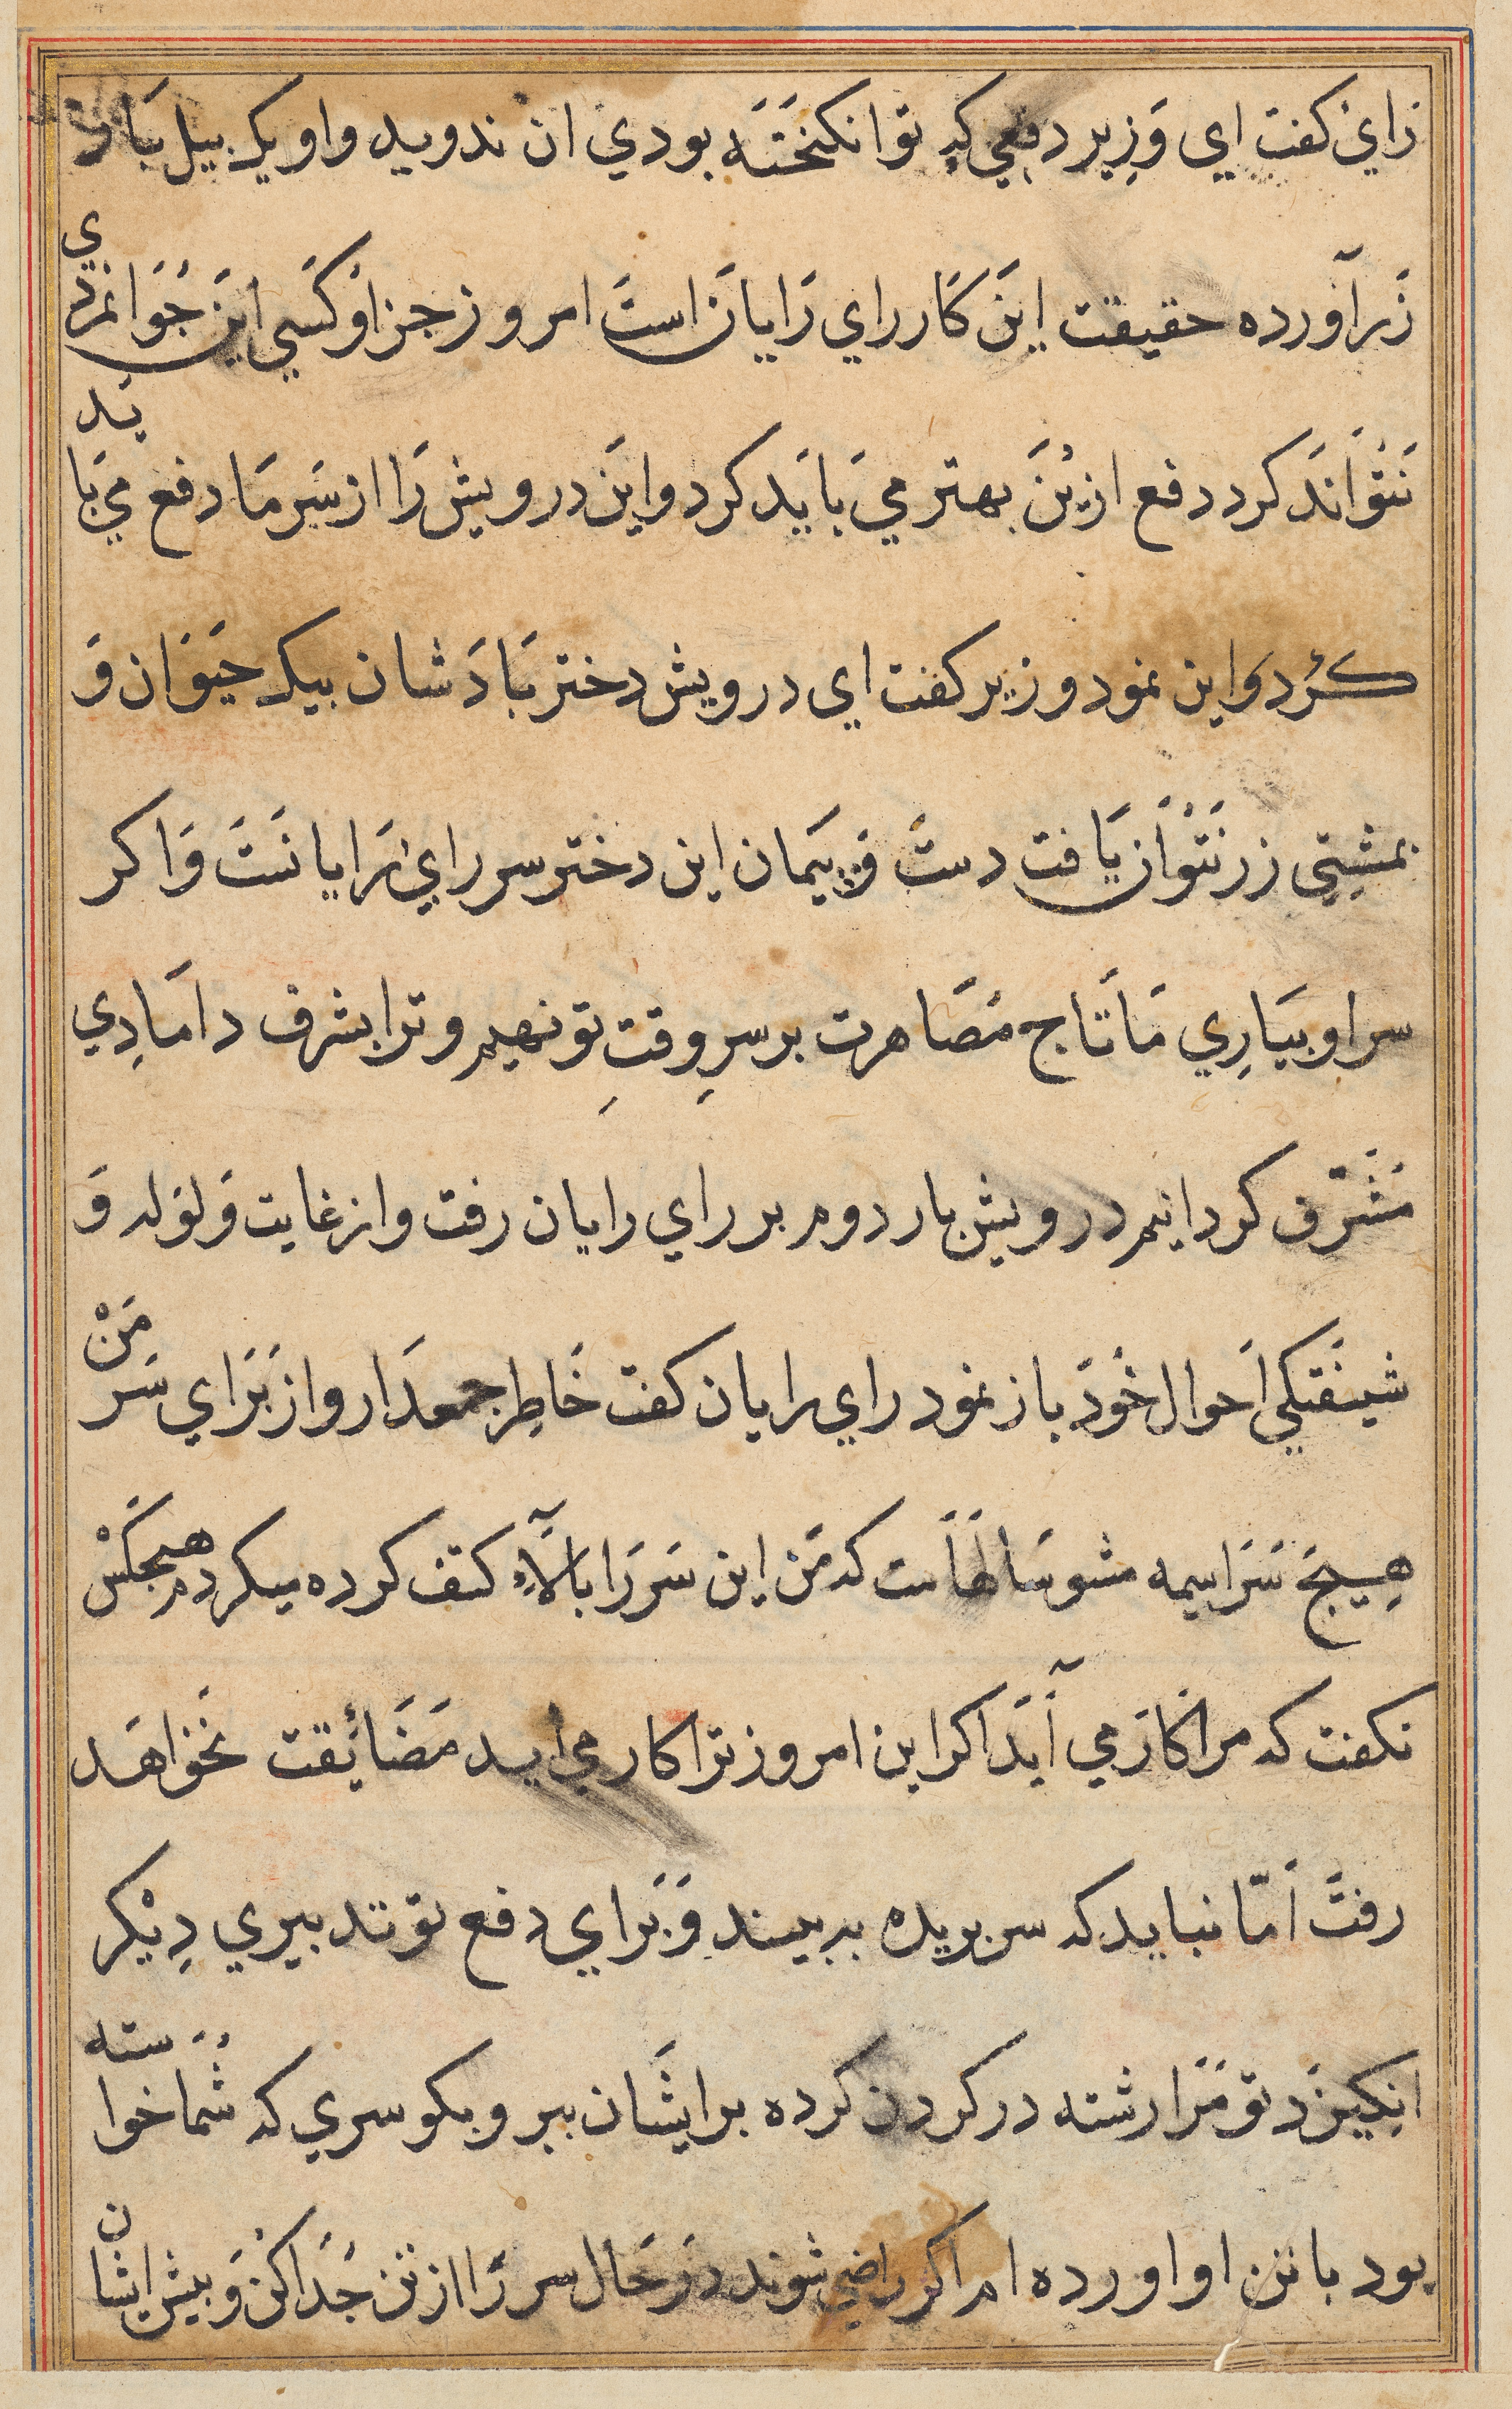 رای کفت ای وزیر دفعی که تو انکیخته بودی ان ندوید واو یک بیل بار
زر آورده حقیقت این کار رای رایان است امروز جز او کسی این جوانمردی
نتواند کرد دفع ازین بهتر می باید کرد و این درویش را از سر ما دفع می باید
کرد و این نمود وزیر کفت ای درویش دختر بادشان بیک حیوان و
بمشتی زر نتوان یافت دست و پیمان این دختر سر رای رایانست و اکر
سر او بیاری ما تاج مصاهرت بر سر وقت تو نهیم و ترا بشرف دامادی
مشرف کردانیم درویش بار دوم بر رای رایان رفت و از غایت ولوله و
شیفتکی احوال خود باز نمود رای رایان کفت خاطر جمعدار و از برای سر من
هیچ سراسیمه مشو سالهاست که من این سر را بالاء کتف کرده میکردم هیچکس
نکفت که مرا کار می آید اکر این امروز ترا کار می اید مضائقت نخواهد
رفت اما نباید که سر بریده به بیند و برای دفع تو تدبیری دیکر
انکیزد تو مرا رشته در کردن کرده بر ایشان ببر و بکو سری که شما خواسته
بود با تن او اورده ام اکر راضی شوند در حال سر را از تن جدا کن و بیش ایشان